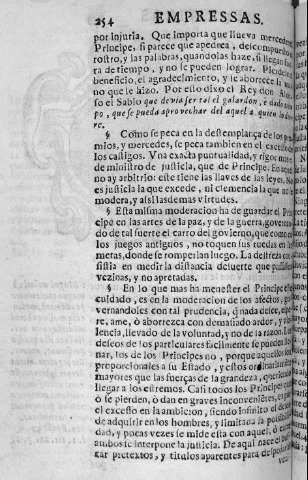 254 EMPRESSAS.
por injuria. Que importa que llueva mercedes
Principe, si parece que apedrea, descompuesto
rostro, y las palabras, quando las haze, si llegan fue
ra de tiempo, y no se pueden lograr. Pierdese
beneficio, el agradecimiento, y se aborrece la
no que le hizo. Por esto dixo el Rey don Alon-
so el Sabio que devia ser tal el galardon, e dado a tiem
po, que se pueda aprovechar del aquel a quien lo die-
re.
§ Como se peca en la destemplança de los pre-
mios, y mercedes, se peca tambien en el excesso
los castigos. Una exacta puntualidad, y rigor mas
de ministro de justicia, que de Principe. En aquel
no ay arbitrio: este tiene las llaves de las leyes. No
es justicia la que excede, ni clemencia la que no se
modera, y assi las demas virtudes.
§ Esta misma moderacion ha de guardar el Prin-
cipe en las artes de la paz, y de la guerra, governan-
do de tal suerte el carro del govierno, que como en
los juegos antiguos, no toquen sus ruedas en las
metas, donde se romperian luego. La destreza con-
sistia en medir la distancia de suerte que passassen
vezinas, y no apretadas.
§ En lo que mas ha menester el Principe el
cuidado, es en la moderacion de los afectos, go-
vernandoles con tal prudencia, q̃ nada desee, espe-
re, ame, ò aborrezca con demasiado ardor, y vio-
lencia, llevado de la voluntad, y no de la razon. Los
deseos de los particulares facilmente se pueden lle-
nar, los de los Principes no, porque aquellos son
proporcionales a su Estado, y estos ordinariamente
mayores que las fuerças de la grandeza, queriendo
llegar a los estremos. Casi todos los Principes que
ò se pierden, ò dan en graves inconvenientes, es por
el excesso en la ambicion, siendo infinito el deseo
de adquirir en los hombres, y limitada la possibili-
dad, y pocas vezes se mide esta con aquel, ò entre
ambos se interpone la justicia. De aqui nace el bus-
car pretextos, y titulos aparentes para despojar